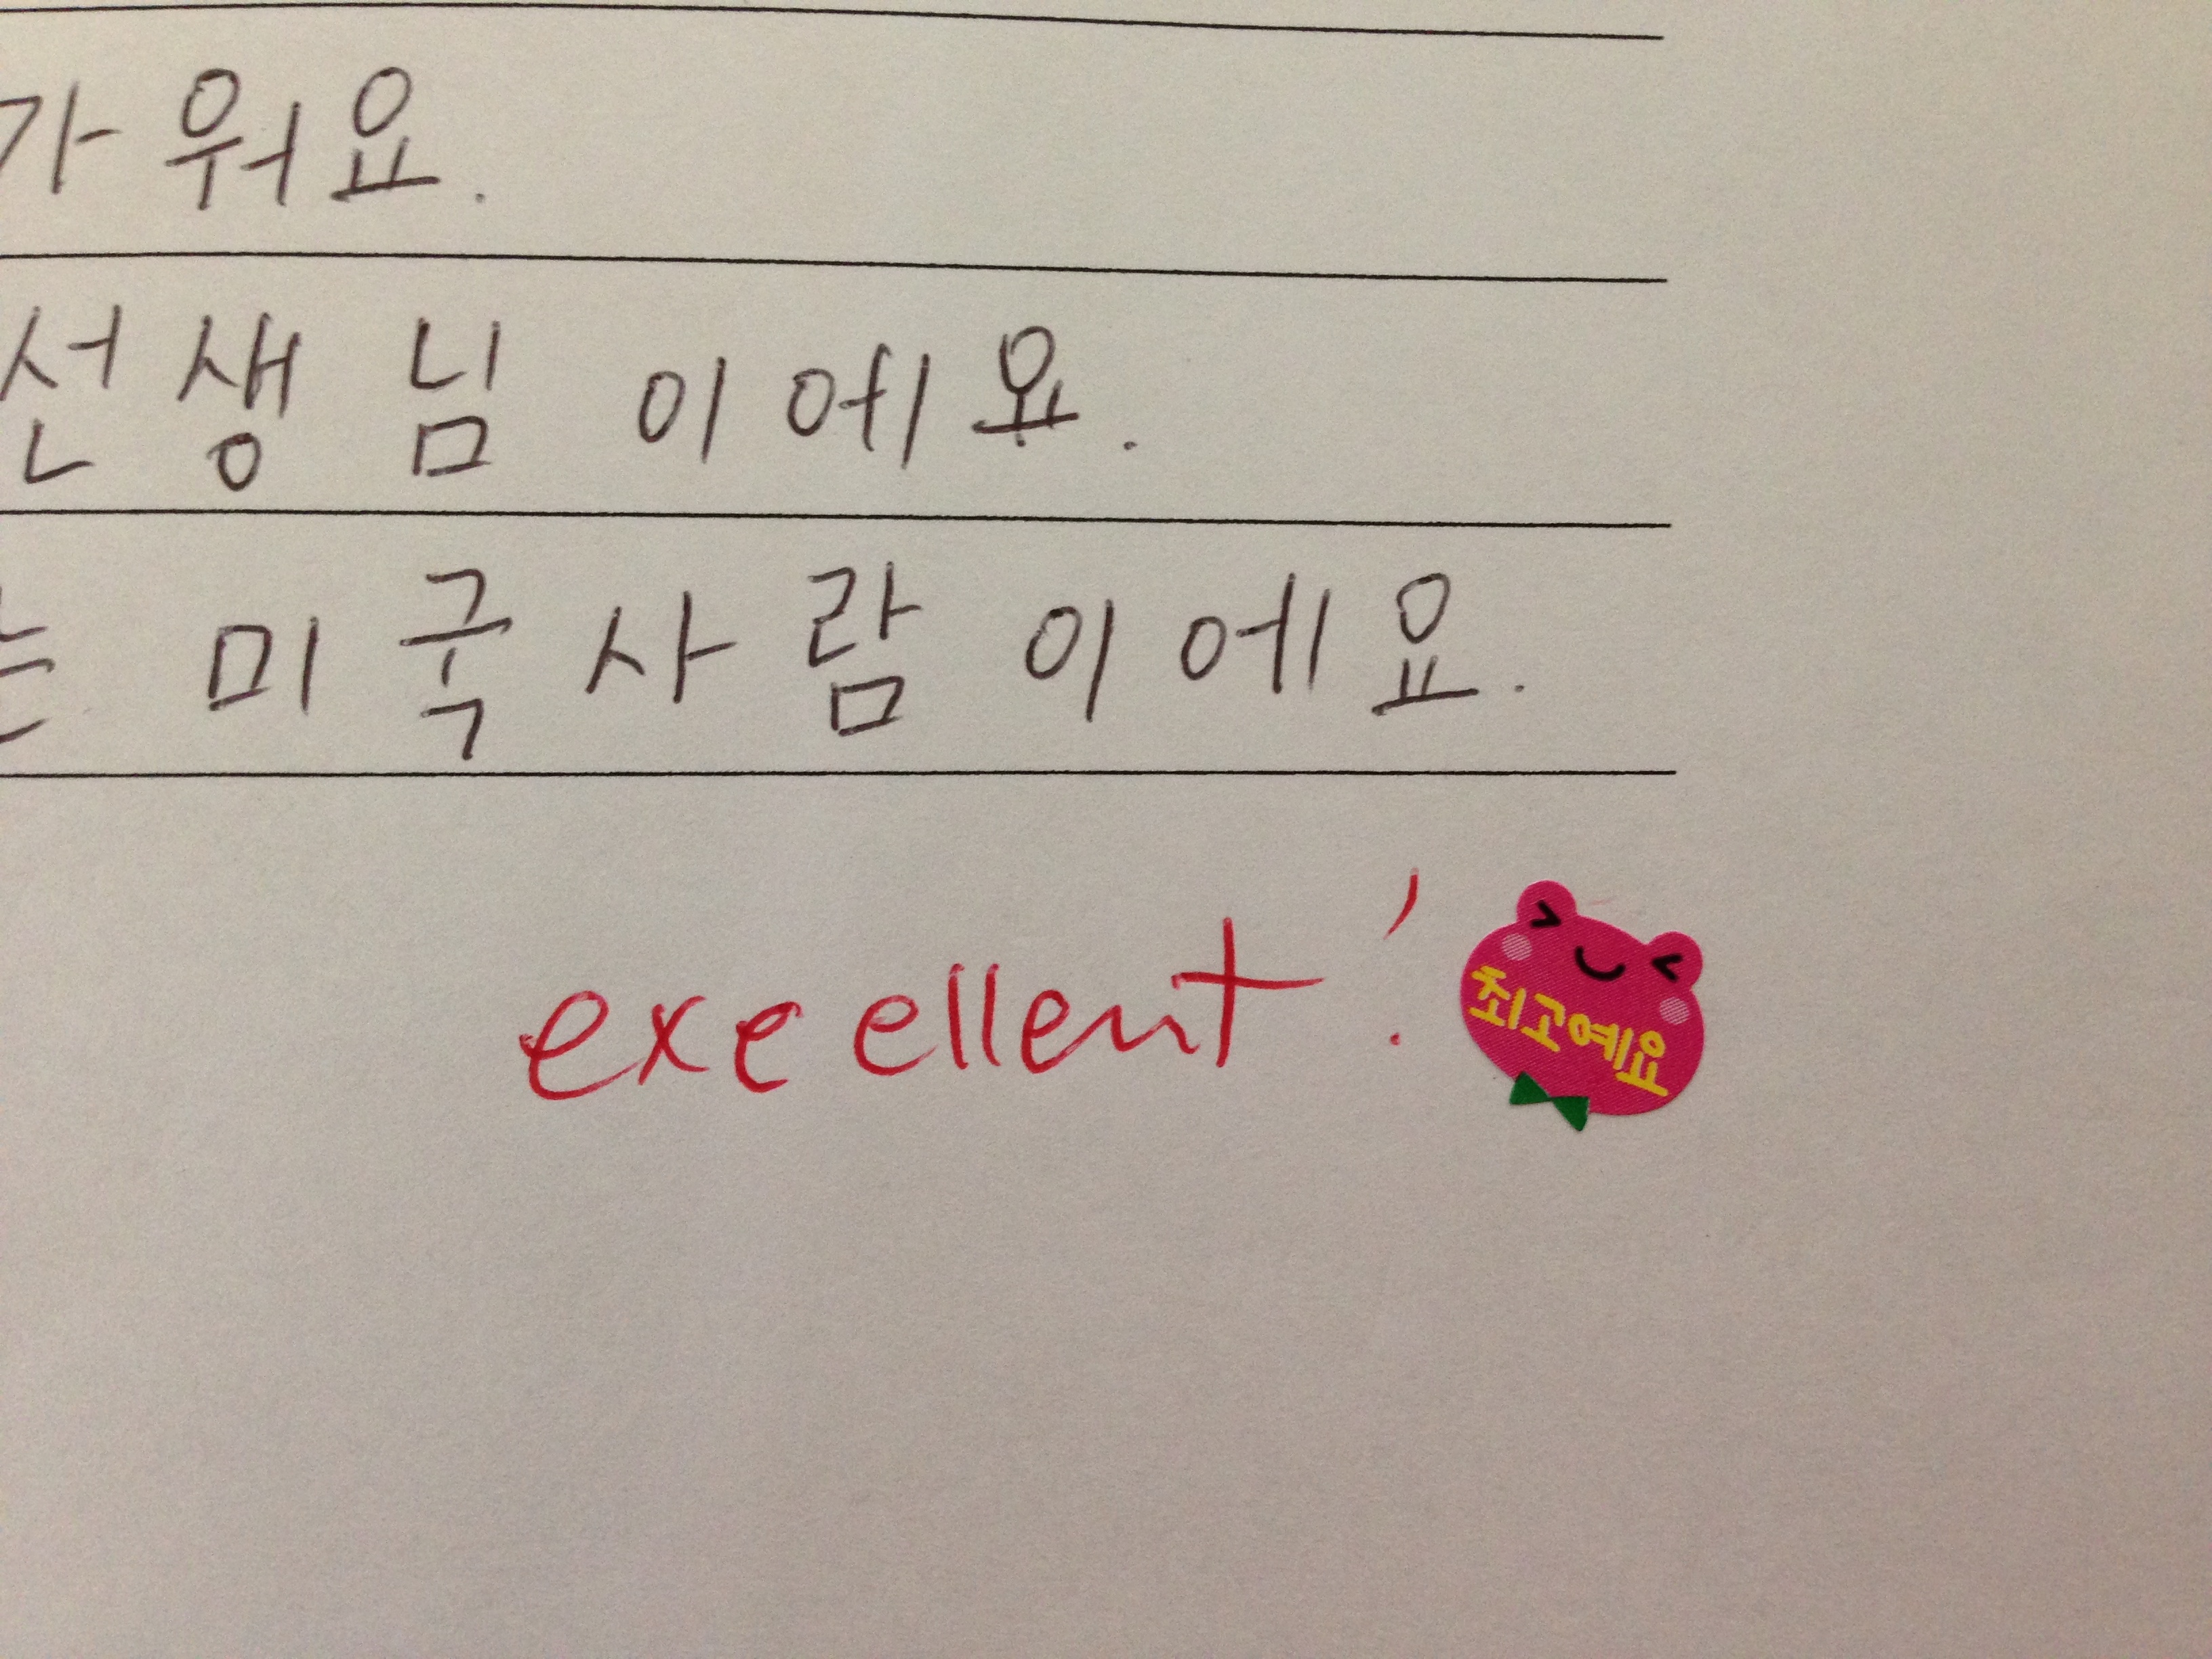 가워요.
선생님 이에요.
는 미국사람 이에요.
excellent!
최고예요